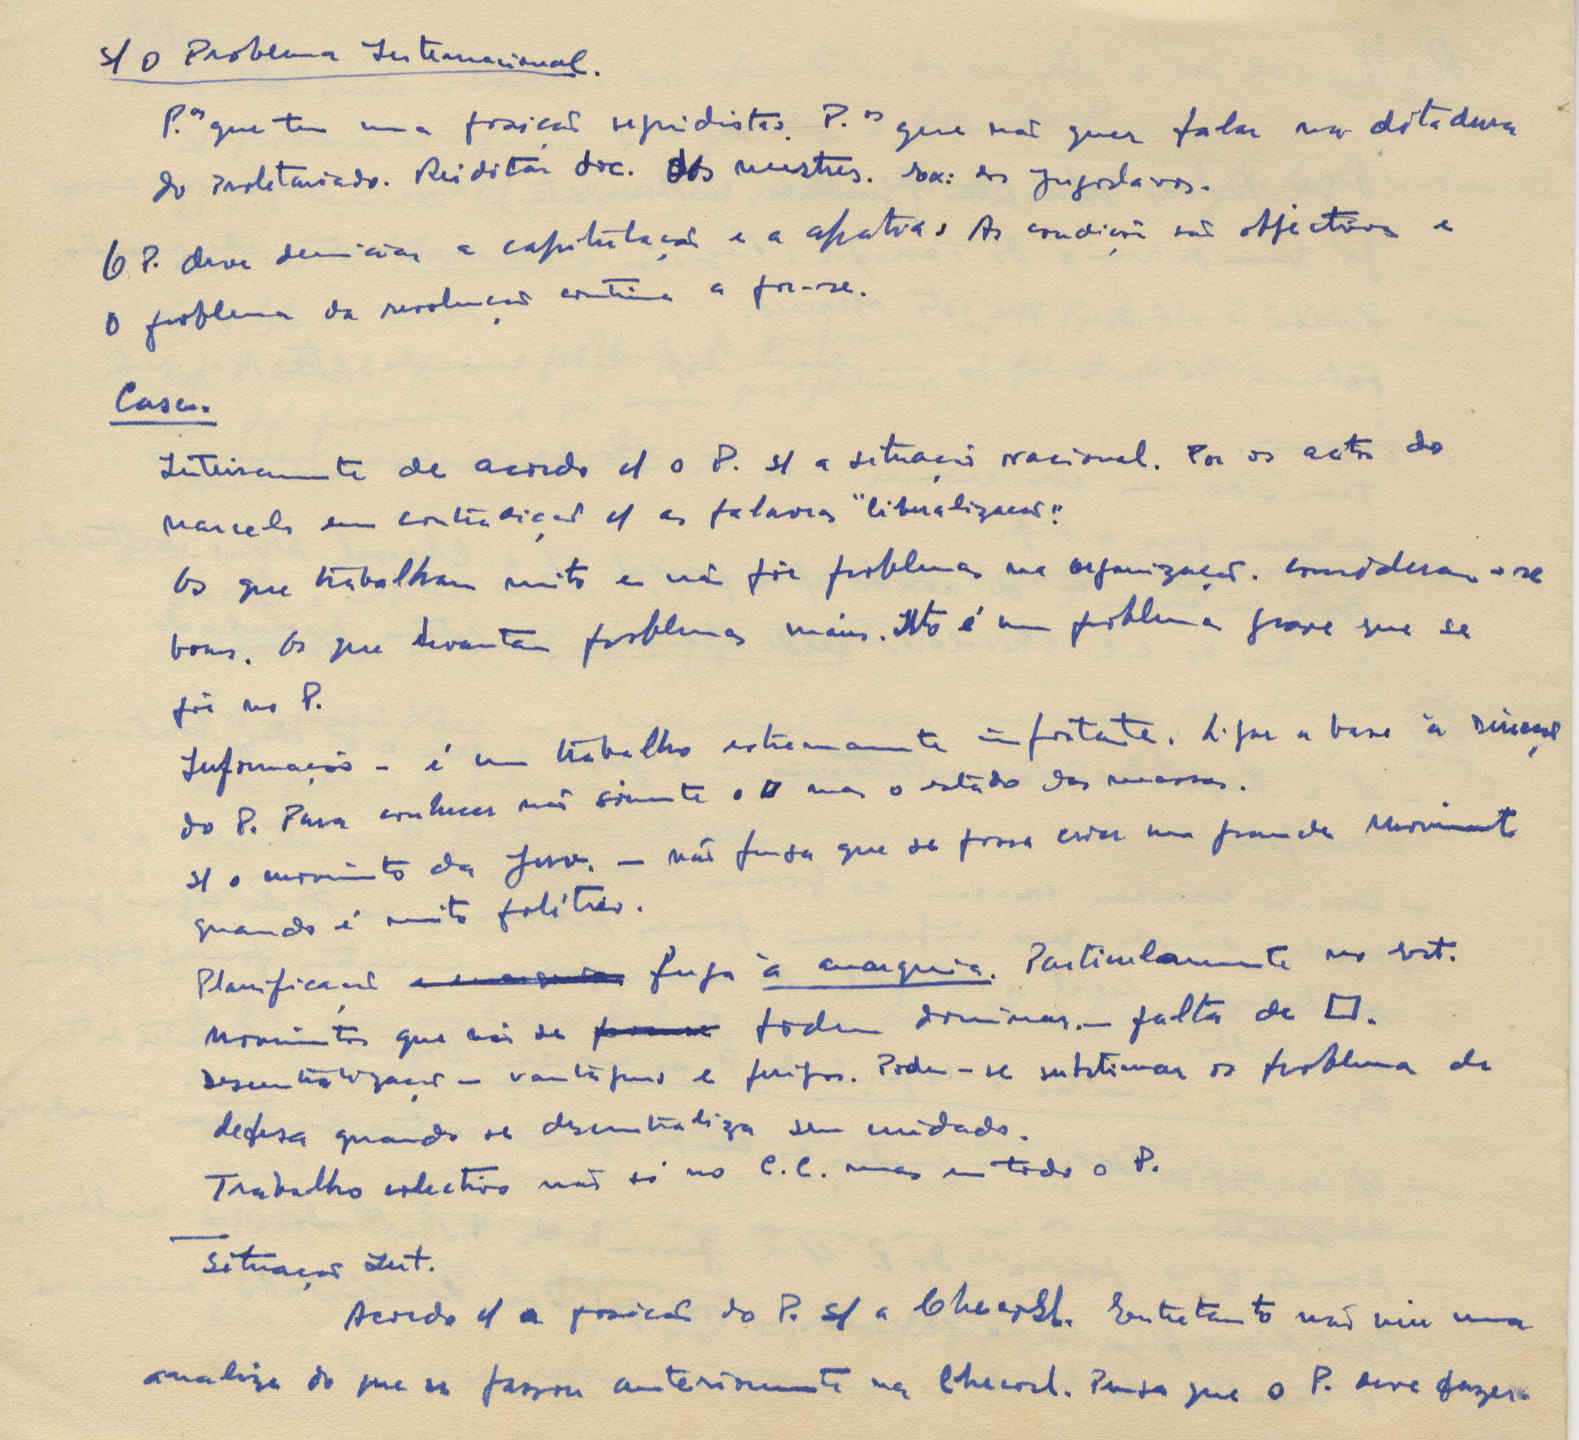 s/ o Problema Internacional.
P.os que tem uma posição seguidistas. P.os que não quer falar na ditadura
do proletariado. Reeditar doc. dos mestres. Ex: os Jugoslavos.
O P. deve denunciar a capitulação e a apatia. As condições são objectivas e
o problema da revolução continua a por-se.
Casa.
Inteiramente de acordo c/ o P. s/ a situação nacional. Por os actos do
Marcelo em contradição c/ as palavras "liberalização".
Os que trabalham muito e não põe problemas na organização. consideram-se
bons. Os que levantam problemas maus. Isto é um problema grave que se
põe no P.
Informação - é um trabalho extremamente importante. Ligar a base à direcção
do P. Para conhecer não sómente o P mas o estado das massas.
s/ o movimento da Juv. - não pensa que se possa criar um grande movimento
quando é muito político.
Planificação fuga à anarquia. Particularmente no ext.
Movimentos que não se podem dominar. - falta de □.
Descentralização - vantagens e perigos. Pode-se subestimar os problema de
defesa quando se descentraliza sem cuidado.
Trabalho colectivo não só no C.C. mas em todo o P.
Situação Int.
Acordo c/ a posição do P. s/ a Checosl. Entretanto não viu uma
analise do que se passou anteriormente na Checosl. Pensa que o P. deve fazer.